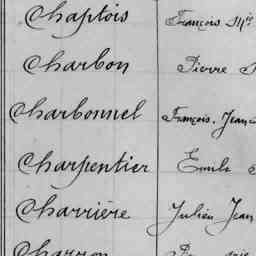 Chaptois François M
Charbon Pierre
Charbonnel François. Jean
Charpentier Emile
Charrière Julien Jean
Charron